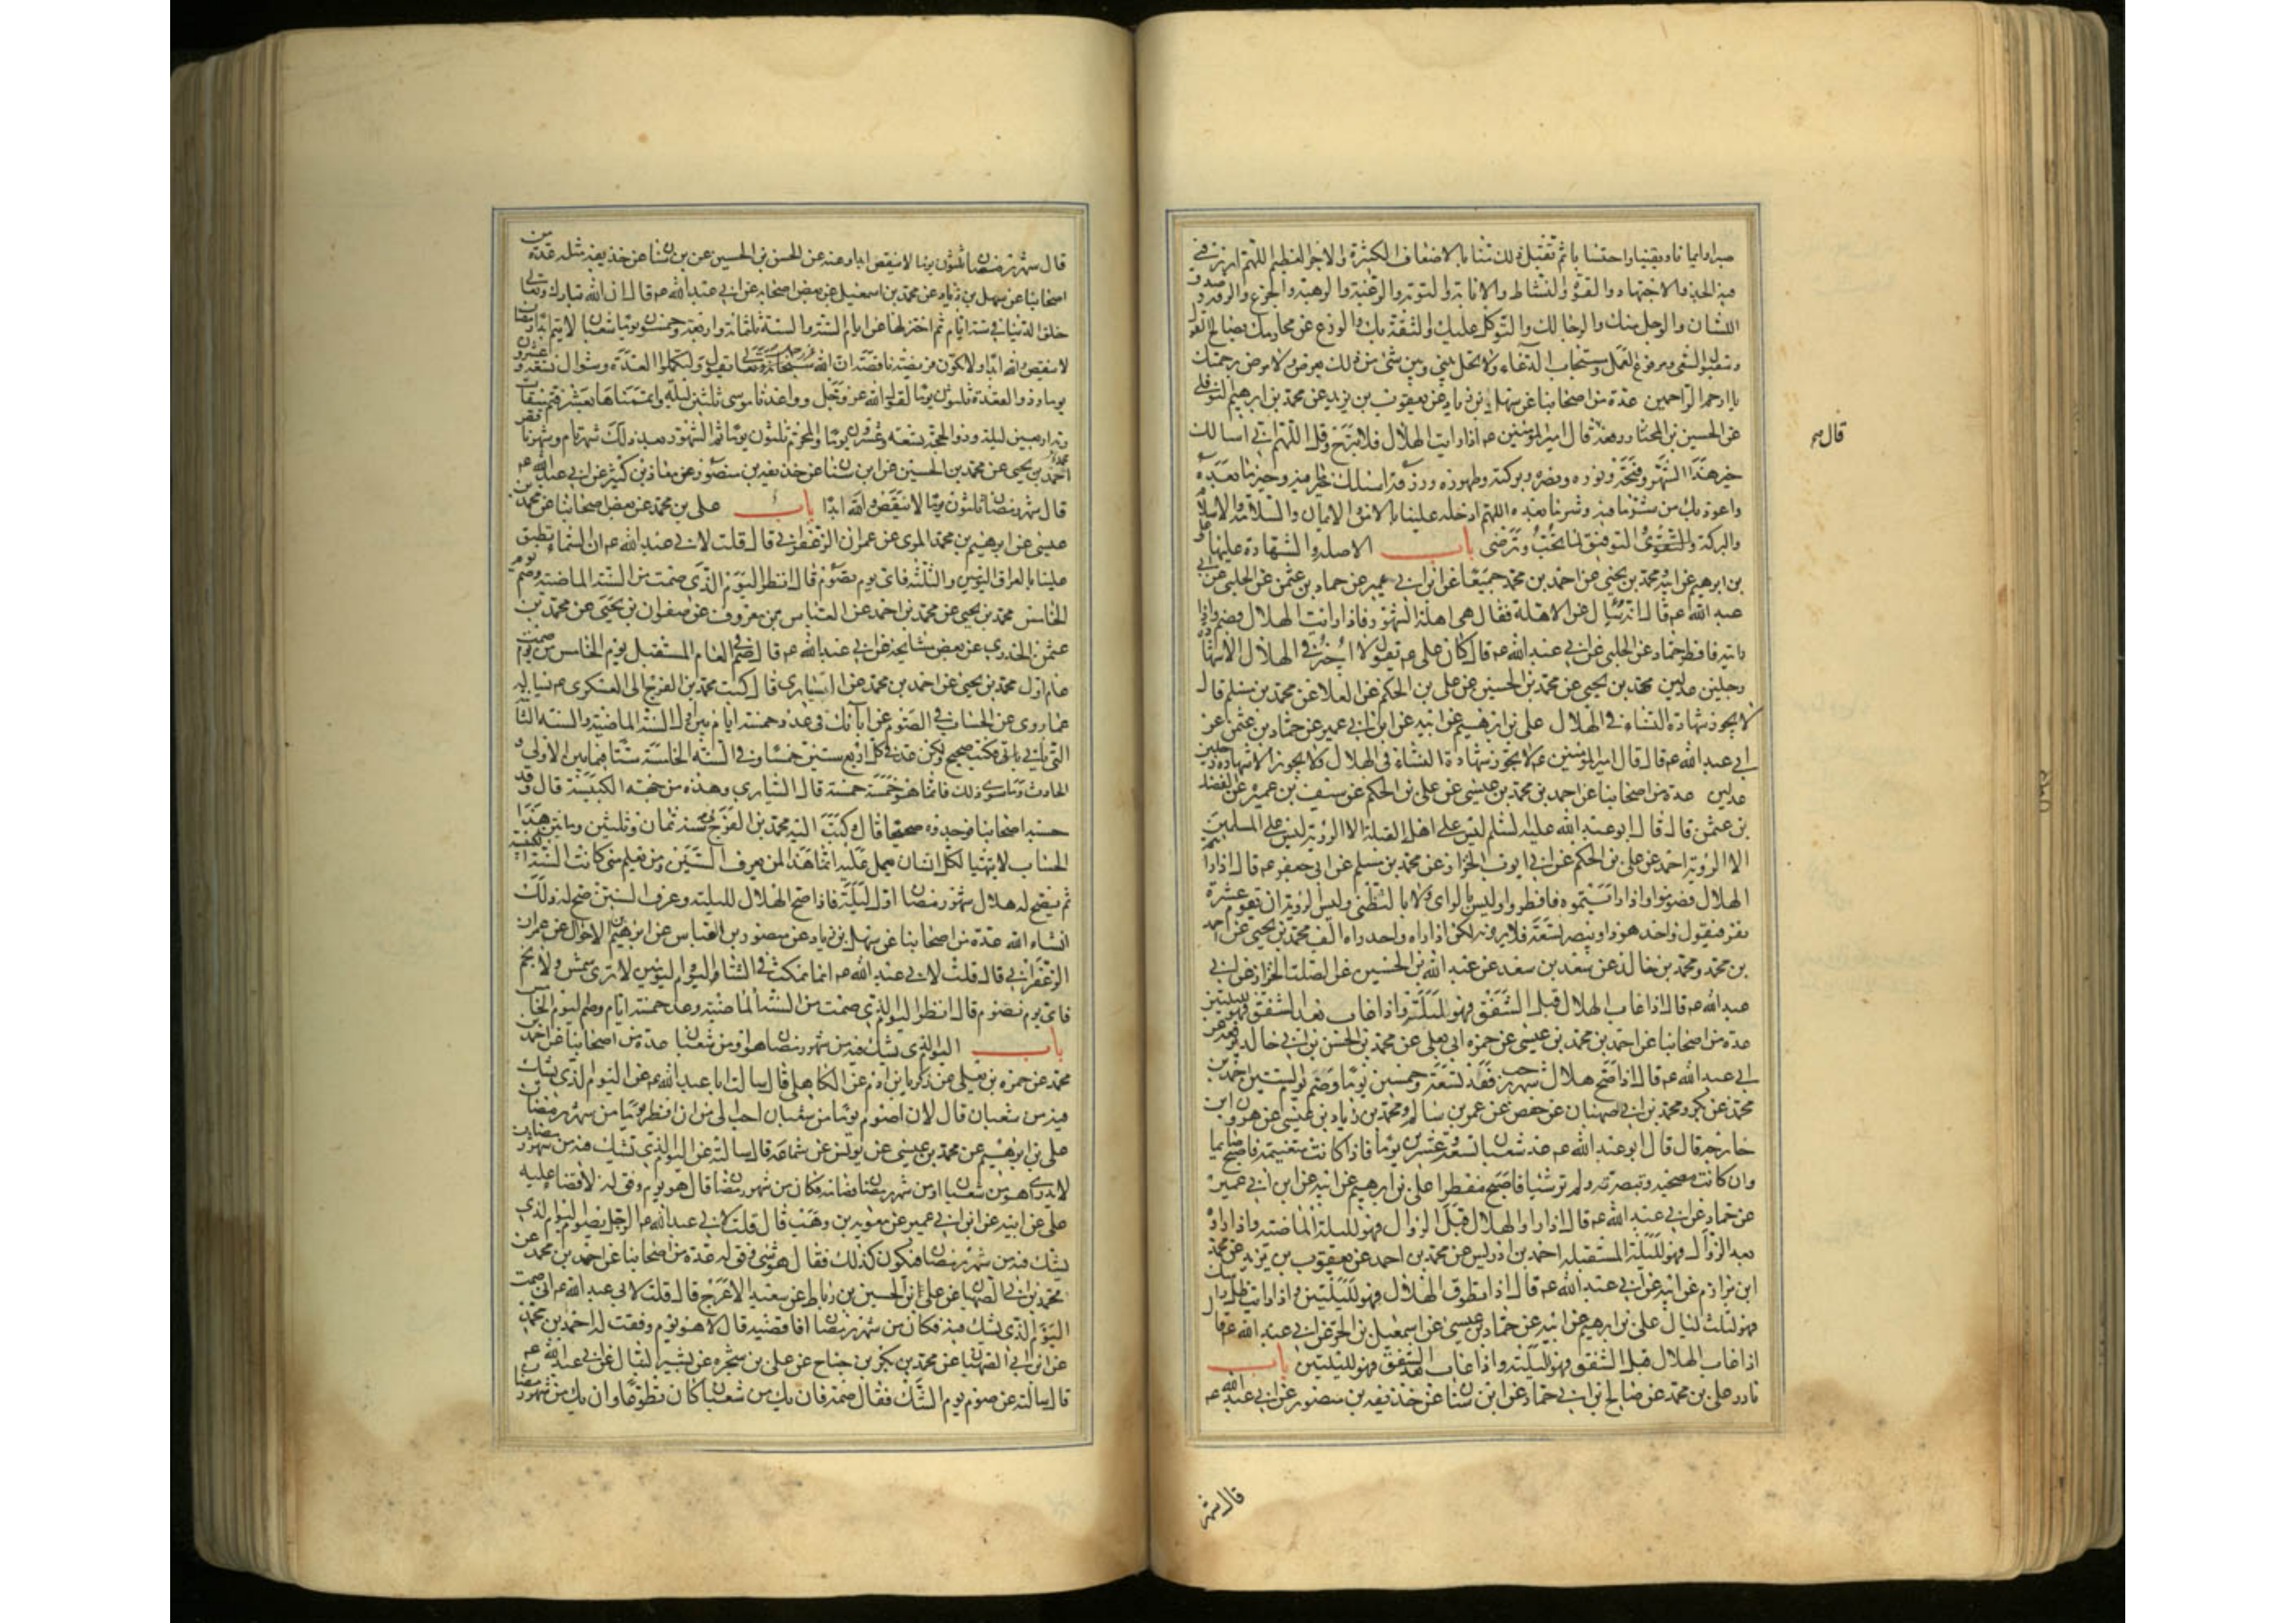 صبرا وايمانا ويقينا واحتسابا ثم تقبل ذلك منا بالاضعاف الكثيرة والاجر العظيم اللهم ارزقني
فيه الجد والاجتهاد والقوة والنشاط والانابة والتوبة والرغبة والرهبة والجزع والرقة وصدق
اللسان والوجل منك والرجا لك والتوكل عليك والثقة بك والورع عن محارمك بصالح القول
ومقبول السعى ومرفوع العمل ومستجاب الدعاء ولا تحل بيني وبين شئ من ذلك بعرض ولا مرض برحمتك
يا ارحم الراحمين عدة من اصحابنا عن سهل بن زياد عن يعقوب بن يزيد عن محمد بن ابرهيم النوفلي
عن الحسين بن المختار رفعه قال امير المؤمنين عم اذا رايت الهلال فلا تبرح وقل اللهم اني اسالك
خير هذا الشهر وفتحه ونوره ونصره وبركته وطهوره ورزقه اسئلك خير ما فيه وخير ما بعده
واعوذ بك من شر ما فيه وشر ما بعده اللهم ادخله علينا بالامن والايمان والسلامة والاسلام
والبركة والتقوى والتوفيق لما تحب وترضى باب الاهلة والشهادة عليها على
بن ابرهيم عن ابيه ومحمد بن يحيى عن احمد بن محمد جميعا عن ابن ابي عمير عن حماد بن عثمن عن الحلبي عن ابي
عبد الله عم قال انه سئل عن الاهلة فقال هي اهلة الشهور فاذا رايت الهلال فصم واذا
رايته فافطر حماد عن الحلبي عن ابي عبد الله عم قال كان علي عم يقول لا اجيز في الهلال الا شهادة
رجلين عدلين محمد بن يحيى عن محمد بن الحسين عن علي بن الحكم عن العلا عن محمد بن مسلم قال
لا يجوز شهادة النساء في الهلال علي بن ابرهيم عن ابيه عن ابن ابي عمير عن حماد بن عثمن عن
ابي عبد الله عم قال قال امير المؤمنين عم لا يجوز شهادة النساء في الهلال ولا يجوز الا شهادة رجلين
عدلين عدة من اصحابنا عن احمد بن محمد بن عيسى عن علي بن الحكم عن سيف بن عميره عن الفضل
بن عثمن قال قال ابو عبد الله عليه السلم ليس على اهل القبلة الا الروية ليس على المسلمين
الا الروية احمد عن علي بن الحكم عن ابي ايوب الخزاز عن محمد بن مسلم عن ابي جعفر عم قال اذا رايتم
الهلال فصوموا واذا رايتموه فافطروا وليس بالراى ولا بالتظنى وليس الروية ان تقوم عشرة
نفر فيقول واحد هوذا وينصر تسعة فلا يرونه لكن اذا راه واحد راه الف محمد بن يحيى عن احمد
بن محمد ومحمد بن خالد عن سعد بن سعد عن عبد الله بن الحسين عن الصلت الخزاز عن ابي
عبد الله عم قال اذا غاب الهلال قبل الشفق فهو لليلة واذا غاب بعد الشفق فهو لليلتين
عدة من اصحابنا عن احمد بن محمد بن عيسى عن حمزه ابي يعلى عن محمد بن الحسن بن ابي خالد يرفعه عن
ابي عبد الله عم قال اذا صح هلال شهر رجب فعد تسعة وخمسين يوما وصم يوم الستين احمد بن
محمد عن بكر ومحمد بن ابي صهبان عن حفص عن عمر بن سالم ومحمد بن زياد بن عيسى عن هرون بن
خارجه قال قال ابو عبد الله عم عد شعبان تسعة وعشرين يوما فاذا كانت متغيمة فاصبح صايما
وان كانت مصحيه وتبصرته ولم تر شيئا فاصبح مفطرا علي بن ابرهيم عن ابيه عن ابن ابي عمير
عن حماد عن ابي عبد الله عم قال اذا راوا الهلال قبل الزوال فهو لليلة الماضية واذا راوه
بعد الزوال فهو لليلة المستقبلة احمد بن ادريس عن محمد بن احمد عن يعقوب بن يزيد عن محمد
ابن مرازم عن ابيه عن ابي عبد الله عم قال اذا تطوق الهلال فهو لليلتين واذا رايت ظل راسك
فهو لثلث ليال علي بن ابرهيم عن ابيه عن حماد بن عيسى عن اسمعيل بن الحر عن ابي عبد الله عم قال
اذا غاب الهلال قبل الشفق فهو لليلته واذا غاب بعد الشفق فهو لليلتين باب
نادر علي بن محمد عن صالح بن ابي حماد عن ابن سنان عن حذيفه بن منصور عن ابي عبد الله عم
قال شهر
قال عم
قال شهر رمضان ثلثون يوما لا ينقص ابدا وعنه عن الحسن بن الحسين عن بن سنان عن حذيفه مثله عدة من
اصحابنا عن سهل بن زياد عن محمد بن اسمعيل عن بعض اصحابه عن ابي عبد الله عم قال ان الله تبارك وتعالى
خلق الدنيا في ستة ايام ثم اختزلها عن ايام السنة والسنة ثلثمائة واربعة وخمسون يوما شعبان لا يتم ابدا رمضان
لا ينقص والله ابدا ولا تكون فريضة ناقصة ان الله عز وجل يقول ولتكملوا العدة وشوال تسعة وعشرون
يوما وذو القعدة ثلثون يوما لقول الله عز وجل وواعدنا موسى ثلثين ليلة واتممناها بعشر فتم ميقات
ربه اربعين ليلة وذو الحجة تسعة وعشرون يوما والمحرم ثلثون يوما ثم الشهور بعد ذلك شهر تام وشهر ناقص
محمد بن يحيى عن محمد بن الحسين عن ابن سنان عن حذيفه بن منصور عن معاذ بن كثير عن ابي عبد الله عم
قال شهر رمضان ثلثون يوما لا ينقص والله ابدا باب علي بن محمد عن بعض اصحابنا عن محمد بن
عيسى عن ابرهيم بن محمد المدنى عن عمران الزعفراني قال قلت لابي عبد الله عم ان السماء تطبق
علينا بالعراق اليومين والثلثة فاي يوم نصوم قال انظر اليوم الذي صمت من السنة الماضية وصم يوم
الخامس محمد بن يحيى عن محمد بن احمد عن العباس بن معروف عن صفوان بن يحيى عن محمد بن
عثمن الخدري عن بعض مشايخه عن ابي عبد الله عم قال صم في العام المستقبل يوم الخامس من يوم صمت
عام اول محمد بن يحيى عن احمد بن محمد عن السياري قال كتب محمد بن الفرج الى العسكرى عم يساله
عما روى عن الحساب في الصوم عن ابائك في عد خمسة ايام بين اول السنة الماضية والسنة الثانية
التي تاتي فكتب صحيح ولكن عد في كل اربع سنين خمسا وفي السنة الخامسة ستا فيما بين الاولى و
الحادث وما سوى ذلك فانما هو خمسة خمسة قال السياري وهذه من جهة الكبيسة قال وقد
حسبه اصحابنا فوجدوه صحيحا قال وكتب اليه محمد بن الفرج في سنة ثمان وثلثين وماتين هذا
الحساب لا يتهيا لكل انسان يعمل عليه انما هذا لمن يعرف السنين ومن يعلم متى كانت السنة الكبيسة
ثم يصح له هلال شهر رمضان اول ليلة فاذا صح الهلال لليلته وعرف السنين صح له ذلك
انشاء الله عدة من اصحابنا عن سهل بن زياد عن منصور بن العباس عن ابرهيم الاحول عن عمران
الزعفراني قال قلت لابي عبد الله عم انما نمكث في الشتاء اليوم واليومين لا نرى شمس ولا نجم
فاي يوم نصوم قال انظر اليوم الذي صمت من السنة الماضية وعد خمسة ايام وصم اليوم الخامس
باب اليوم الذي يشك فيه من شهر رمضان هو او من شعبان عدة من اصحابنا عن احمد بن
محمد عن حمزه بن يعلى عن زكريا بن ادم عن الكاهلي قال سالت ابا عبد الله عم عن اليوم الذي يشك
فيه من شعبان قال لان اصوم يوما من شعبان احب الى من ان افطر يوما من شهر رمضان
علي بن ابرهيم عن محمد بن عيسى عن يونس عن سماعه قال سالته عن اليوم الذي يشك فيه من شهر رمضان
لا يدرى اهو من شعبان او من شهر رمضان فصامه فكان من شهر رمضان قال هو يوم وفق له لا قضاء عليه
علي عن ابيه عن ابن ابي عمير عن معويه بن وهب قال قلت لابي عبد الله عم الرجل يصوم اليوم الذي
يشك فيه من شهر رمضان فيكون كذلك فقال هو شئ وفق له عدة من اصحابنا عن احمد بن محمد عن
محمد بن ابي الصهبان عن علي بن الحسين بن رباط عن سعيد الاعرج قال قلت لابي عبد الله عم اني صمت
اليوم الذي يشك فيه فكان من شهر رمضان افاقضيه قال لا هو يوم وفقت له احمد بن محمد
عن ابن ابي الصهبان عن محمد بن بكر بن جناح عن علي بن شجره عن بشير النبال عن ابي عبد الله عم
قال سالته عن صوم يوم الشك فقال صمه فان يك من شعبان كان تطوعا وان يك من شهر رمضان